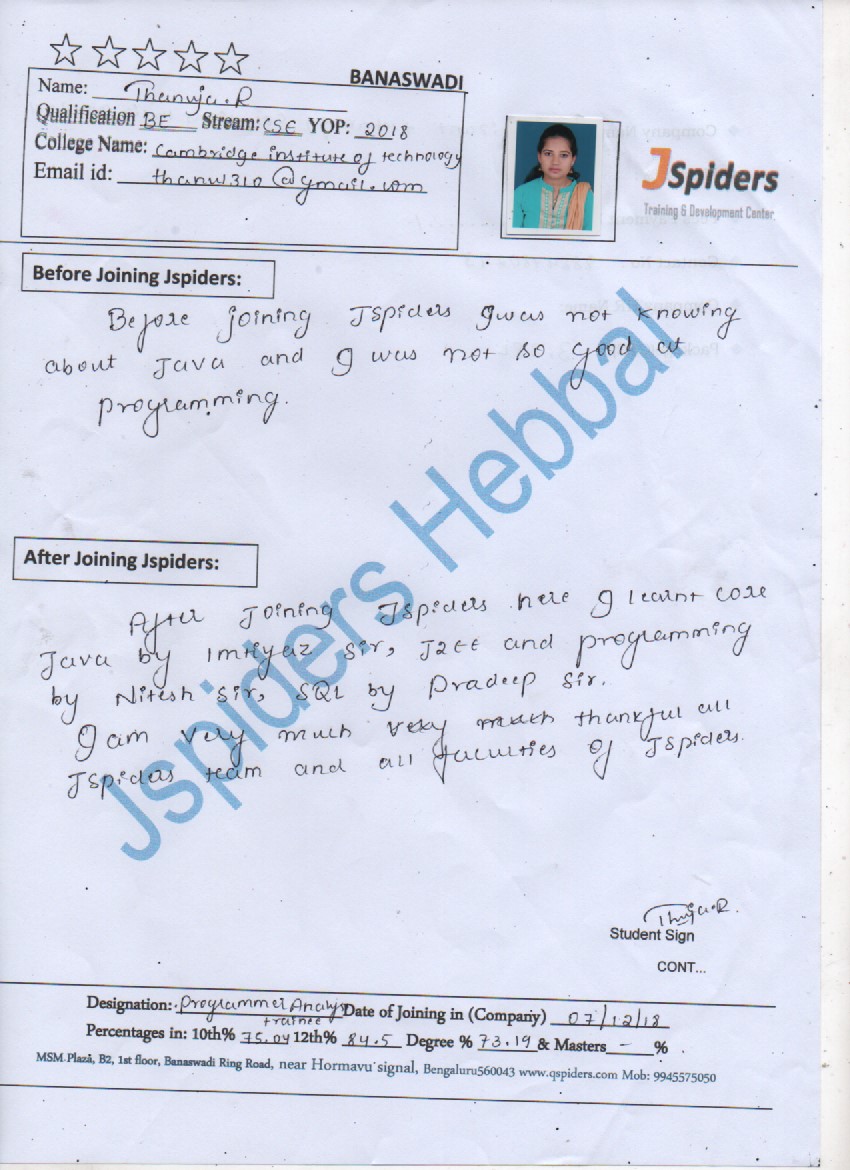 BANASWADI
Name: Thanuja.R
Qualification BE Stream: CSE YOP: 2018
College Name: Cambridge institute of technology
Email id: thanu1310@gmail.com
JSpiders
Training & Development Center
Before Joining Jspiders:
Before joining JSpiders I was not knowing
about Java and I was not so good at
programming.
After Joining Jspiders:
After Joining Jspiders here I learnt core
Java by Imtiyaz Sir, J2EE and programming
by Nitesh Sir, SQL by Pradeep Sir.
I am very much very much thankful all
JSpiders team and all faculties of JSpiders.
Jspiders Hebbal
Student Sign
CONT...
Designation: Programmer Analyst Date of Joining in (Company) 07/12/18
trainee
Percentages in: 10th% 75.04 12th% 84.5 Degree % 73.19 & Masters - %
MSM Plaza, B2, 1st floor, Banaswadi Ring Road, near Hormavu signal, Bengaluru560043 www.qspiders.com Mob: 9945575050